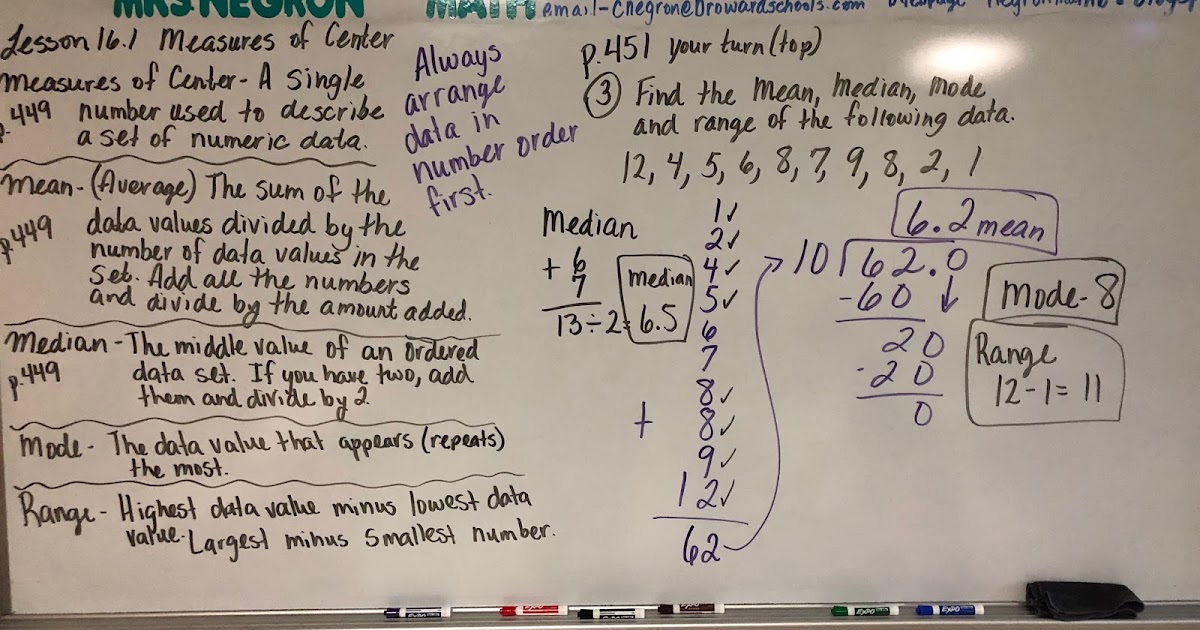 MRS NEGRON MATH
email-Cnegrone@browardschools.com
Lesson 16.1 Measures of Center
Measures of Center - A Single
p.449 number used to describe
a set of numeric data.
Always
arrange
data in
number order
first.
Mean - (Average) The sum of the
p.449 data values divided by the
number of data values in the
Set. Add all the numbers
and divide by the amount added.
Median - The middle value of an ordered
p.449 data set. If you have two, add
them and divide by 2.
Mode - The data value that appears (repeats)
the most.
Range - Highest data value minus lowest data
value. Largest minus Smallest number.
p.451 your turn (top)
③ Find the Mean, Median, Mode
and range of the following data.
12, 4, 5, 6, 8, 7, 9, 8, 2, 1
Median
+ 6
7
13÷2=
median
6.5
1✓
2✓
4✓
5✓
6
7
8✓
+ 8✓
9✓
12✓
62
6.2 mean
10 62.0
-60
20
-20
0
Mode - 8
Range
12-1= 11
EXPO
EXPO
EXPO